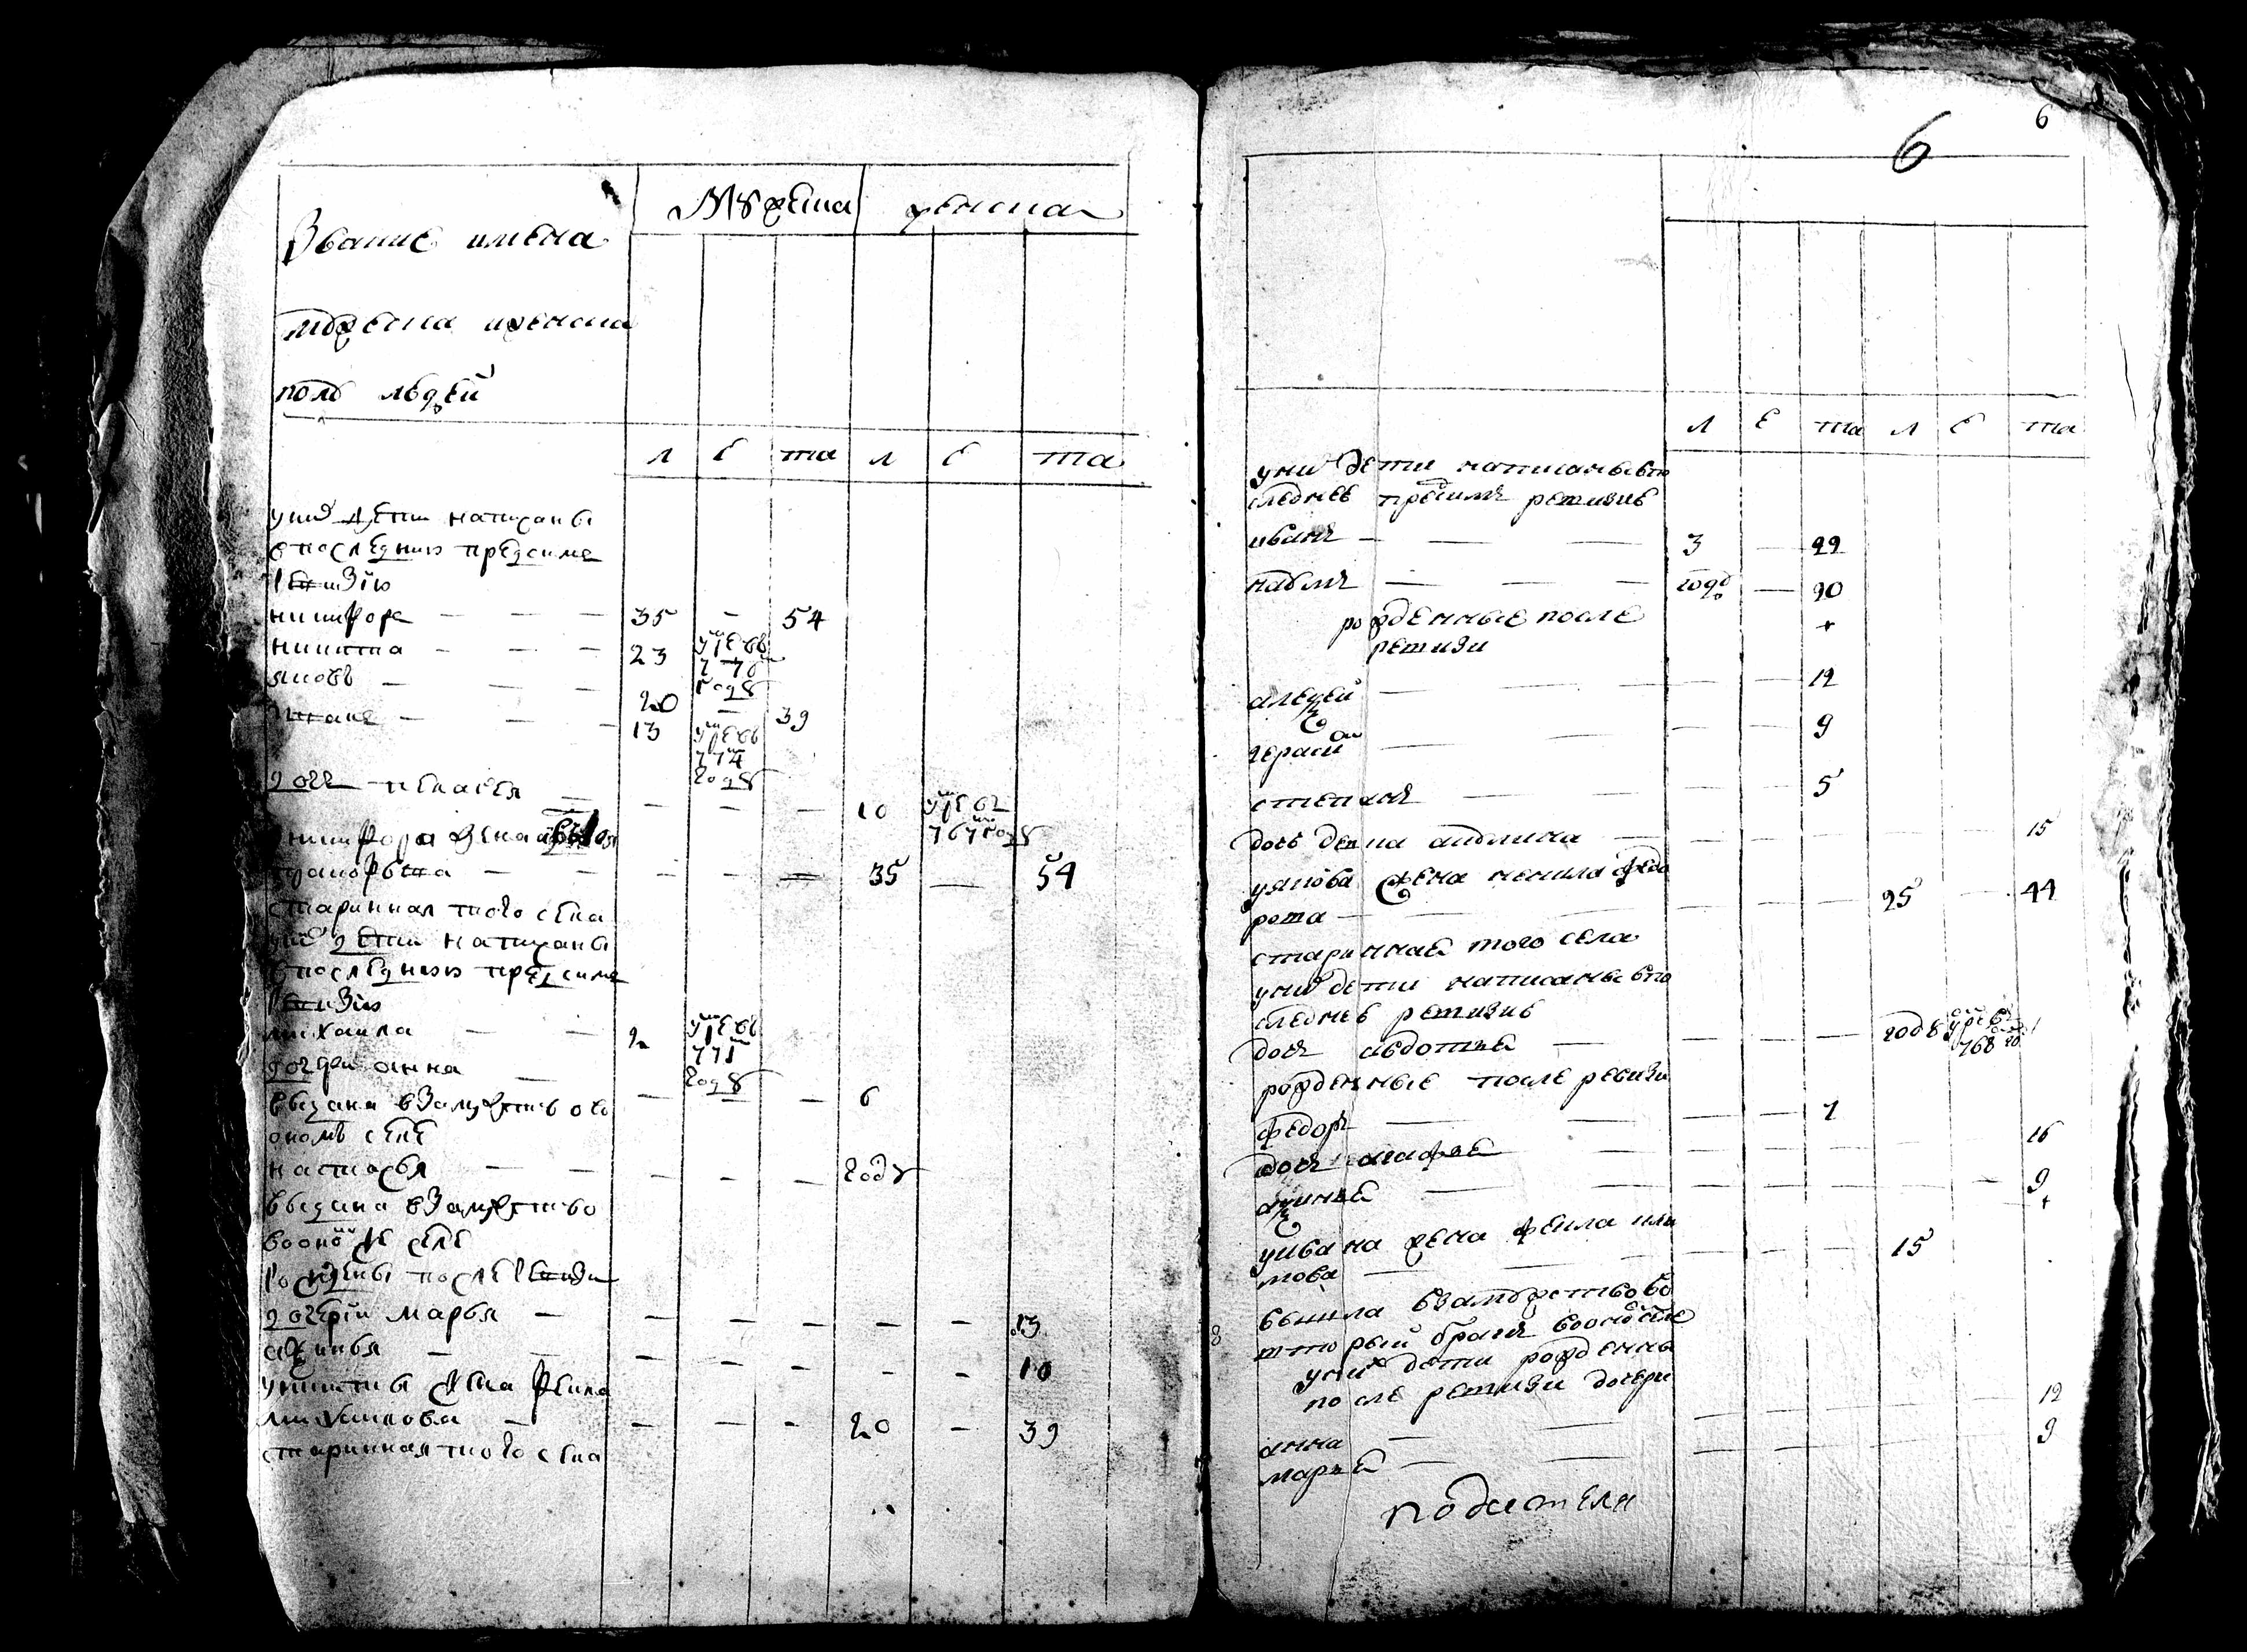 Звание имена
мужеска и женска
полу людей
Мужеска женска
л е та л е та
у них дети написаны
в последнюю пред сим
ревизию
никифор — — — 35 — 54
никита — — — 23 умре в 770 году
яков — — — 20 — 39
— — — 13 умре в 774 году
дочь пелагея — — — — 10 умре в 767 году
у никифора жена
— — — — — 35 — 54
старинная того села
у них дети написаны
в последнюю пред сим
ревизию
михаила — — 2 умре в 771 году
дочери анна — — — — 6
выдана в замужство во
оном селе
настасья — — — — — году
выдана в замужство
в оном же селе
рождены после ревизи
дочери марья — — — — — — 13
аксинья — — — — — — 10
у никиты жена фекла
михайлова — — — — 20 — 39
старинная того села
6
6
л е та л е та
у них дети написаны в по
следнее пред сим ревизие
иван — — — 3 — 22
павел — — — году — 20
рожденные после +
ревизи
алексей — — — — 12
герасим — — — — 9
степан — — — — 5
дочь девка акулина — — — — 15
у якова жена федо
рова — — — — — 25 — 44
старинная того села
у них дети написаны в по
следнее ревизие
дочь авдотья — — — — году умре в 768 го
рожденные после ревизи
федор — — — — 1
дочь марфа — — — — 16
аксинья — — — — — 9
+
у ивана жена фекла
— — — — — 15
вышла в замужство в
вторый брак в оном селе
у них дети рождены
после ревизи дочери
анна — — — — 12
марья — — — — 9
подателя